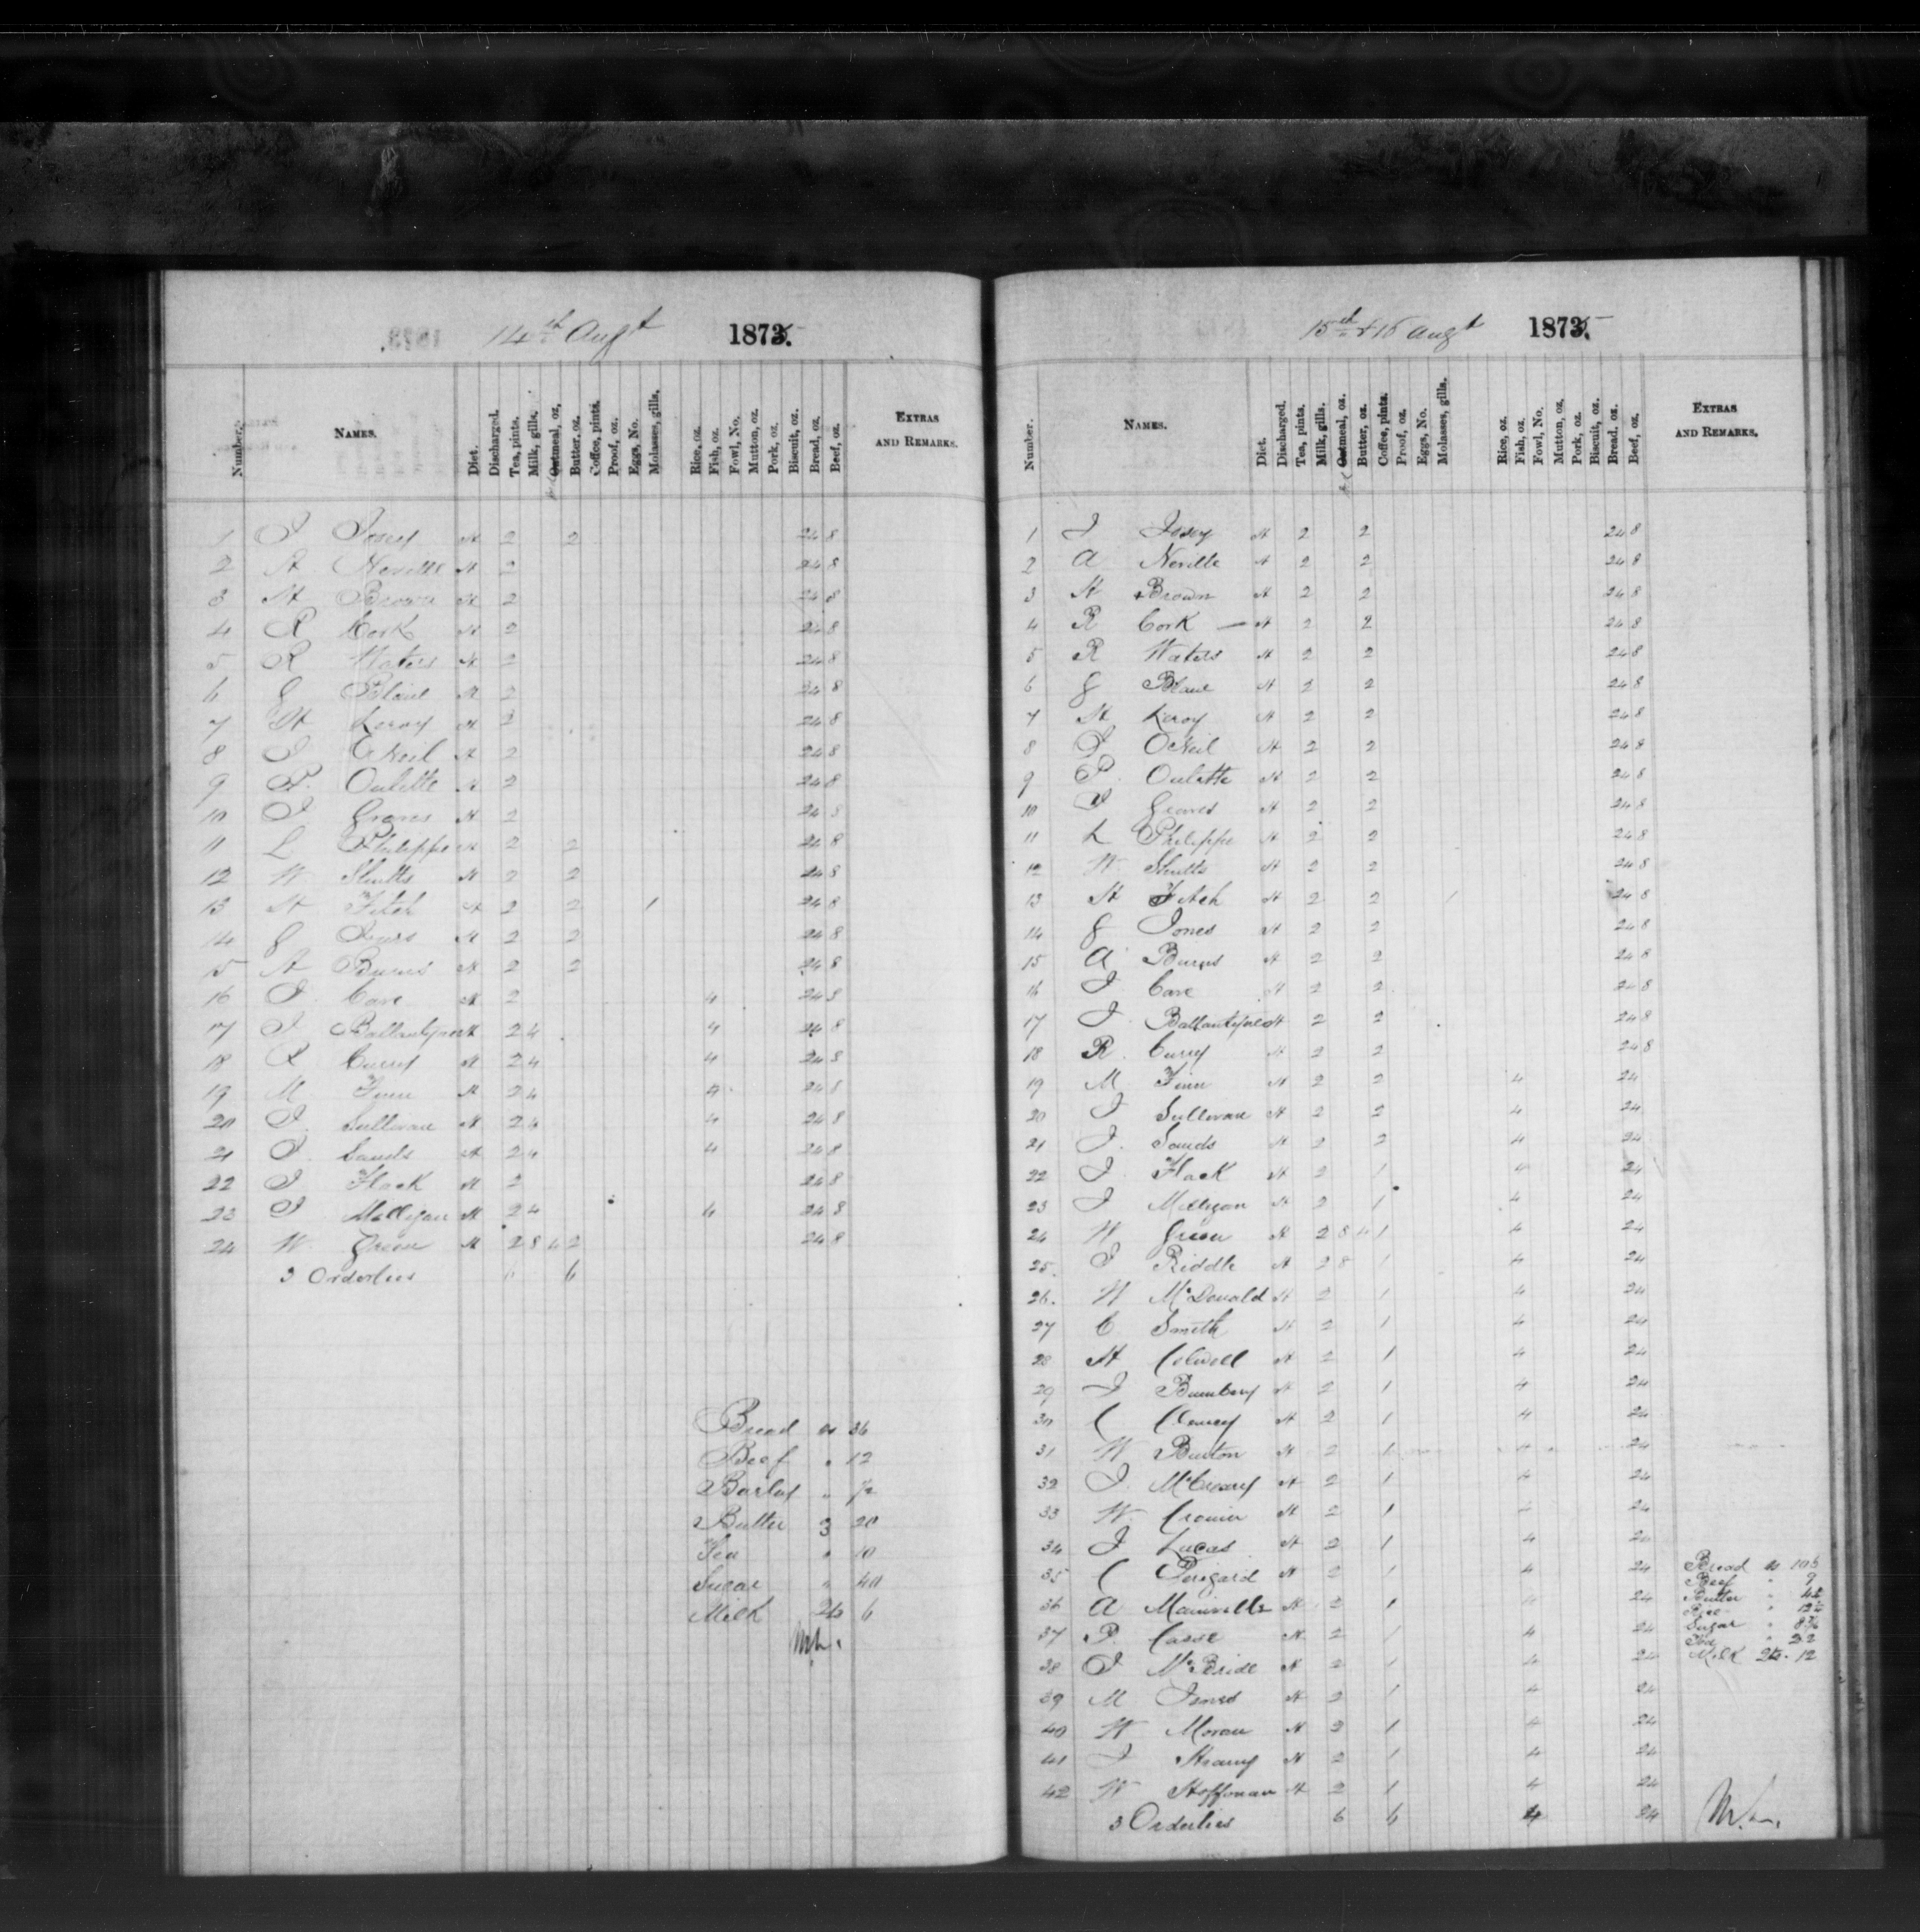 14th Augt 1875.
Number. NAMES. Diet. Discharged. Tea, pints. Milk, gills. Oatmeal, oz. Butter, oz. Coffee, pints. Proof, oz. Eggs, No. Molasses, gills. Rice, oz. Fish, oz. Fowl, No. Mutton, oz. Pork, oz. Biscuit, oz. Bread, oz. Beef, oz. EXTRAS AND REMARKS.
1 J Josey H 2 2 24 8
2 A Neville H 2 24 8
3 H Brown H 2 24 8
4 R Cork H 2 24 8
5 R Waters H 2 24 8
6 G Blane H 2 24 8
7 H Leroy H 2 24 8
8 J ONeil H 2 24 8
9 P. Oulette H 2 24 8
10 J Groves H 2 24 8
11 L Philippe H 2 2 24 8
12 W Shutts H 2 2 24 8
13 H Fitch H 2 2 1 24 8
14 G Jones H 2 2 24 8
15 A Burns H 2 2 24 8
16 J. Cane H 2 4 24 8
17 J Ballantyne H 2 4 4 24 8
18 R Curry H 2 4 4 24 8
19 M Finn H 2 4 4 24 8
20 J. Sullivan H 2 4 4 24 8
21 J. Sands H 2 4 4 24 8
22 J Flack H 2 24 8
23 J Milligan H 2 4 4 24 8
24 W. Green H 2 8 4 2 24 8
3 Orderlies 6 6
Bread 36
Beef " 12
Barley "
Butter 3 20
Tea " 10
Sugar " 40
Milk 6
15th & 16 Augt 1875.
Number. NAMES. Diet. Discharged. Tea, pints. Milk, gills. Oatmeal, oz. Butter, oz. Coffee, pints. Proof, oz. Eggs, No. Molasses, gills. Rice, oz. Fish, oz. Fowl, No. Mutton, oz. Pork, oz. Biscuit, oz. Bread, oz. Beef, oz. EXTRAS AND REMARKS.
1 J Josey H 2 2 24 8
2 A Neville H 2 2 24 8
3 H Brown H 2 2 24 8
4 R Cork — H 2 2 24 8
5 R Waters H 2 2 24 8
6 G Blane H 2 2 24 8
7 H Leroy H 2 2 24 8
8 J ONeil H 2 2 24 8
9 P. Oulette H 2 2 24 8
10 J Groves H 2 2 24 8
11 L Philippe H 2 2 24 8
12 W Shutts H 2 2 24 8
13 H Fitch H 2 2 1 24 8
14 G Jones H 2 2 24 8
15 A Burns H 2 2 24 8
16 J Cane H 2 2 24 8
17 J. Ballantyne H 2 2 24 8
18 R. Curry H 2 2 24 8
19 M Finn H 2 2 4 24
20 J Sullivan H 2 2 4 24
21 J. Sands H 2 2 4 24
22 J. Flack H 2 1 4 24
23 J Milligan H 2 1 4 24
24 W Green H 2 8 4 1 4 24
25. J Riddle H 2 8 1 4 24
26. W McDonald H 2 1 4 24
27 C Smith H 2 1 4 24
28 H Colwell H 2 1 4 24
29 J Bumbery H 2 1 4 24
30 C Clancy H 2 1 4 24
31 W Burton H 2 1 4 24
32 J. McCreary H 2 1 4 24
33 W. Cronin H 2 1 4 24
34 J Lucas H 2 1 4 24
35 C Perigard H 2 1 4 24
36 A Mainville H 2 1 4 24
37 P. Casse H 2 1 4 24
38 J McBride H 2 1 4 24
39 M Jones H 2 1 4 24
40 W Moran H 2 1 4 24
41 J Strany H 2 1 4 24
42 W Hoffman H 2 1 4 24
3 Orderlies 6 6 4 24
Bread
Beef " 9
Butter "
Rice "
Sugar "
Tea " 22
Milk 12